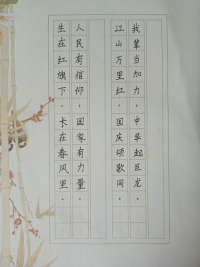 我辈当加力，中华起巨龙，
江山万里红，国庆颂歌闻，
人民有信仰，国家有力量，
生在红旗下，长在春风里，